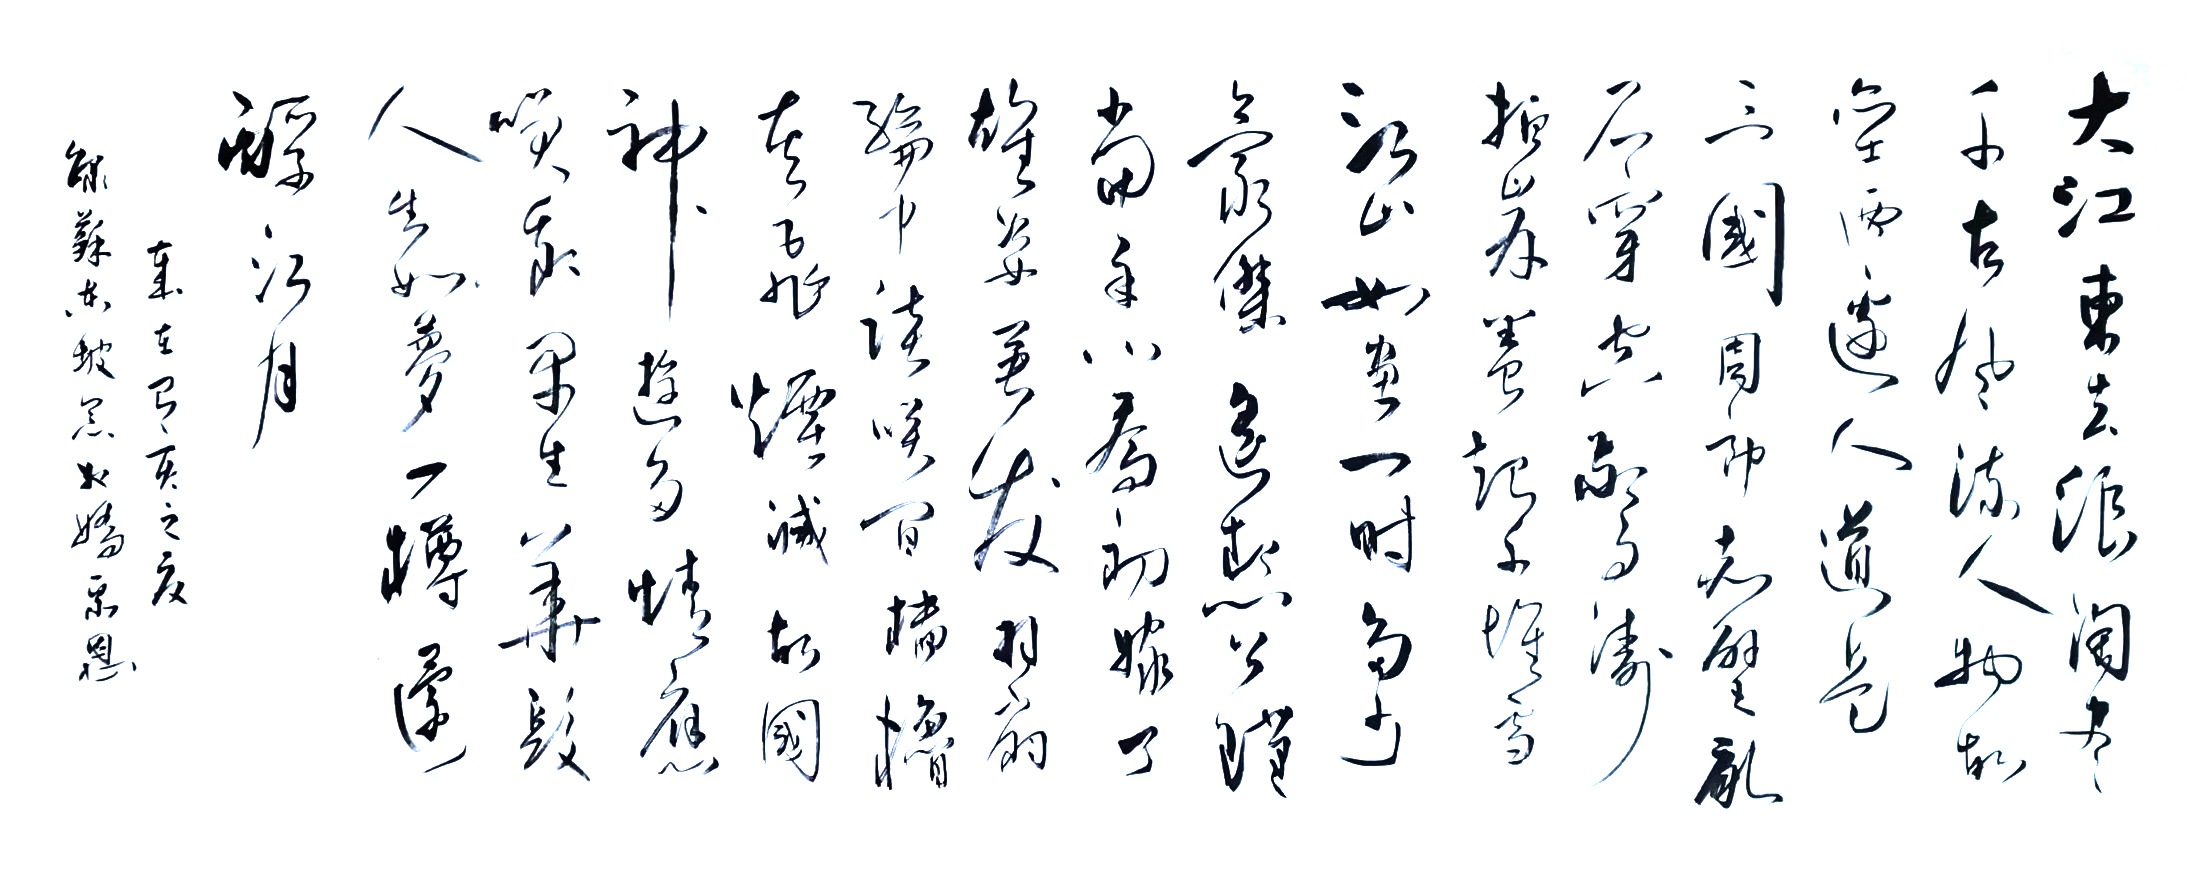 大江東去浪淘尽
千古风流人物故
壘西邊人道是
三國周郎赤壁亂
石穿空驚濤
拍岸卷起千堆雪
江山如畫一時多少
豪傑遙想公瑾
當年小喬初嫁了
雄姿英发羽扇
綸巾談笑間檣櫓
灰飛煙滅故國
神遊多情應
笑我早生華髮
人生如夢一樽還
酹江月
錄蘇東坡念奴嬌
歲在己亥之夏